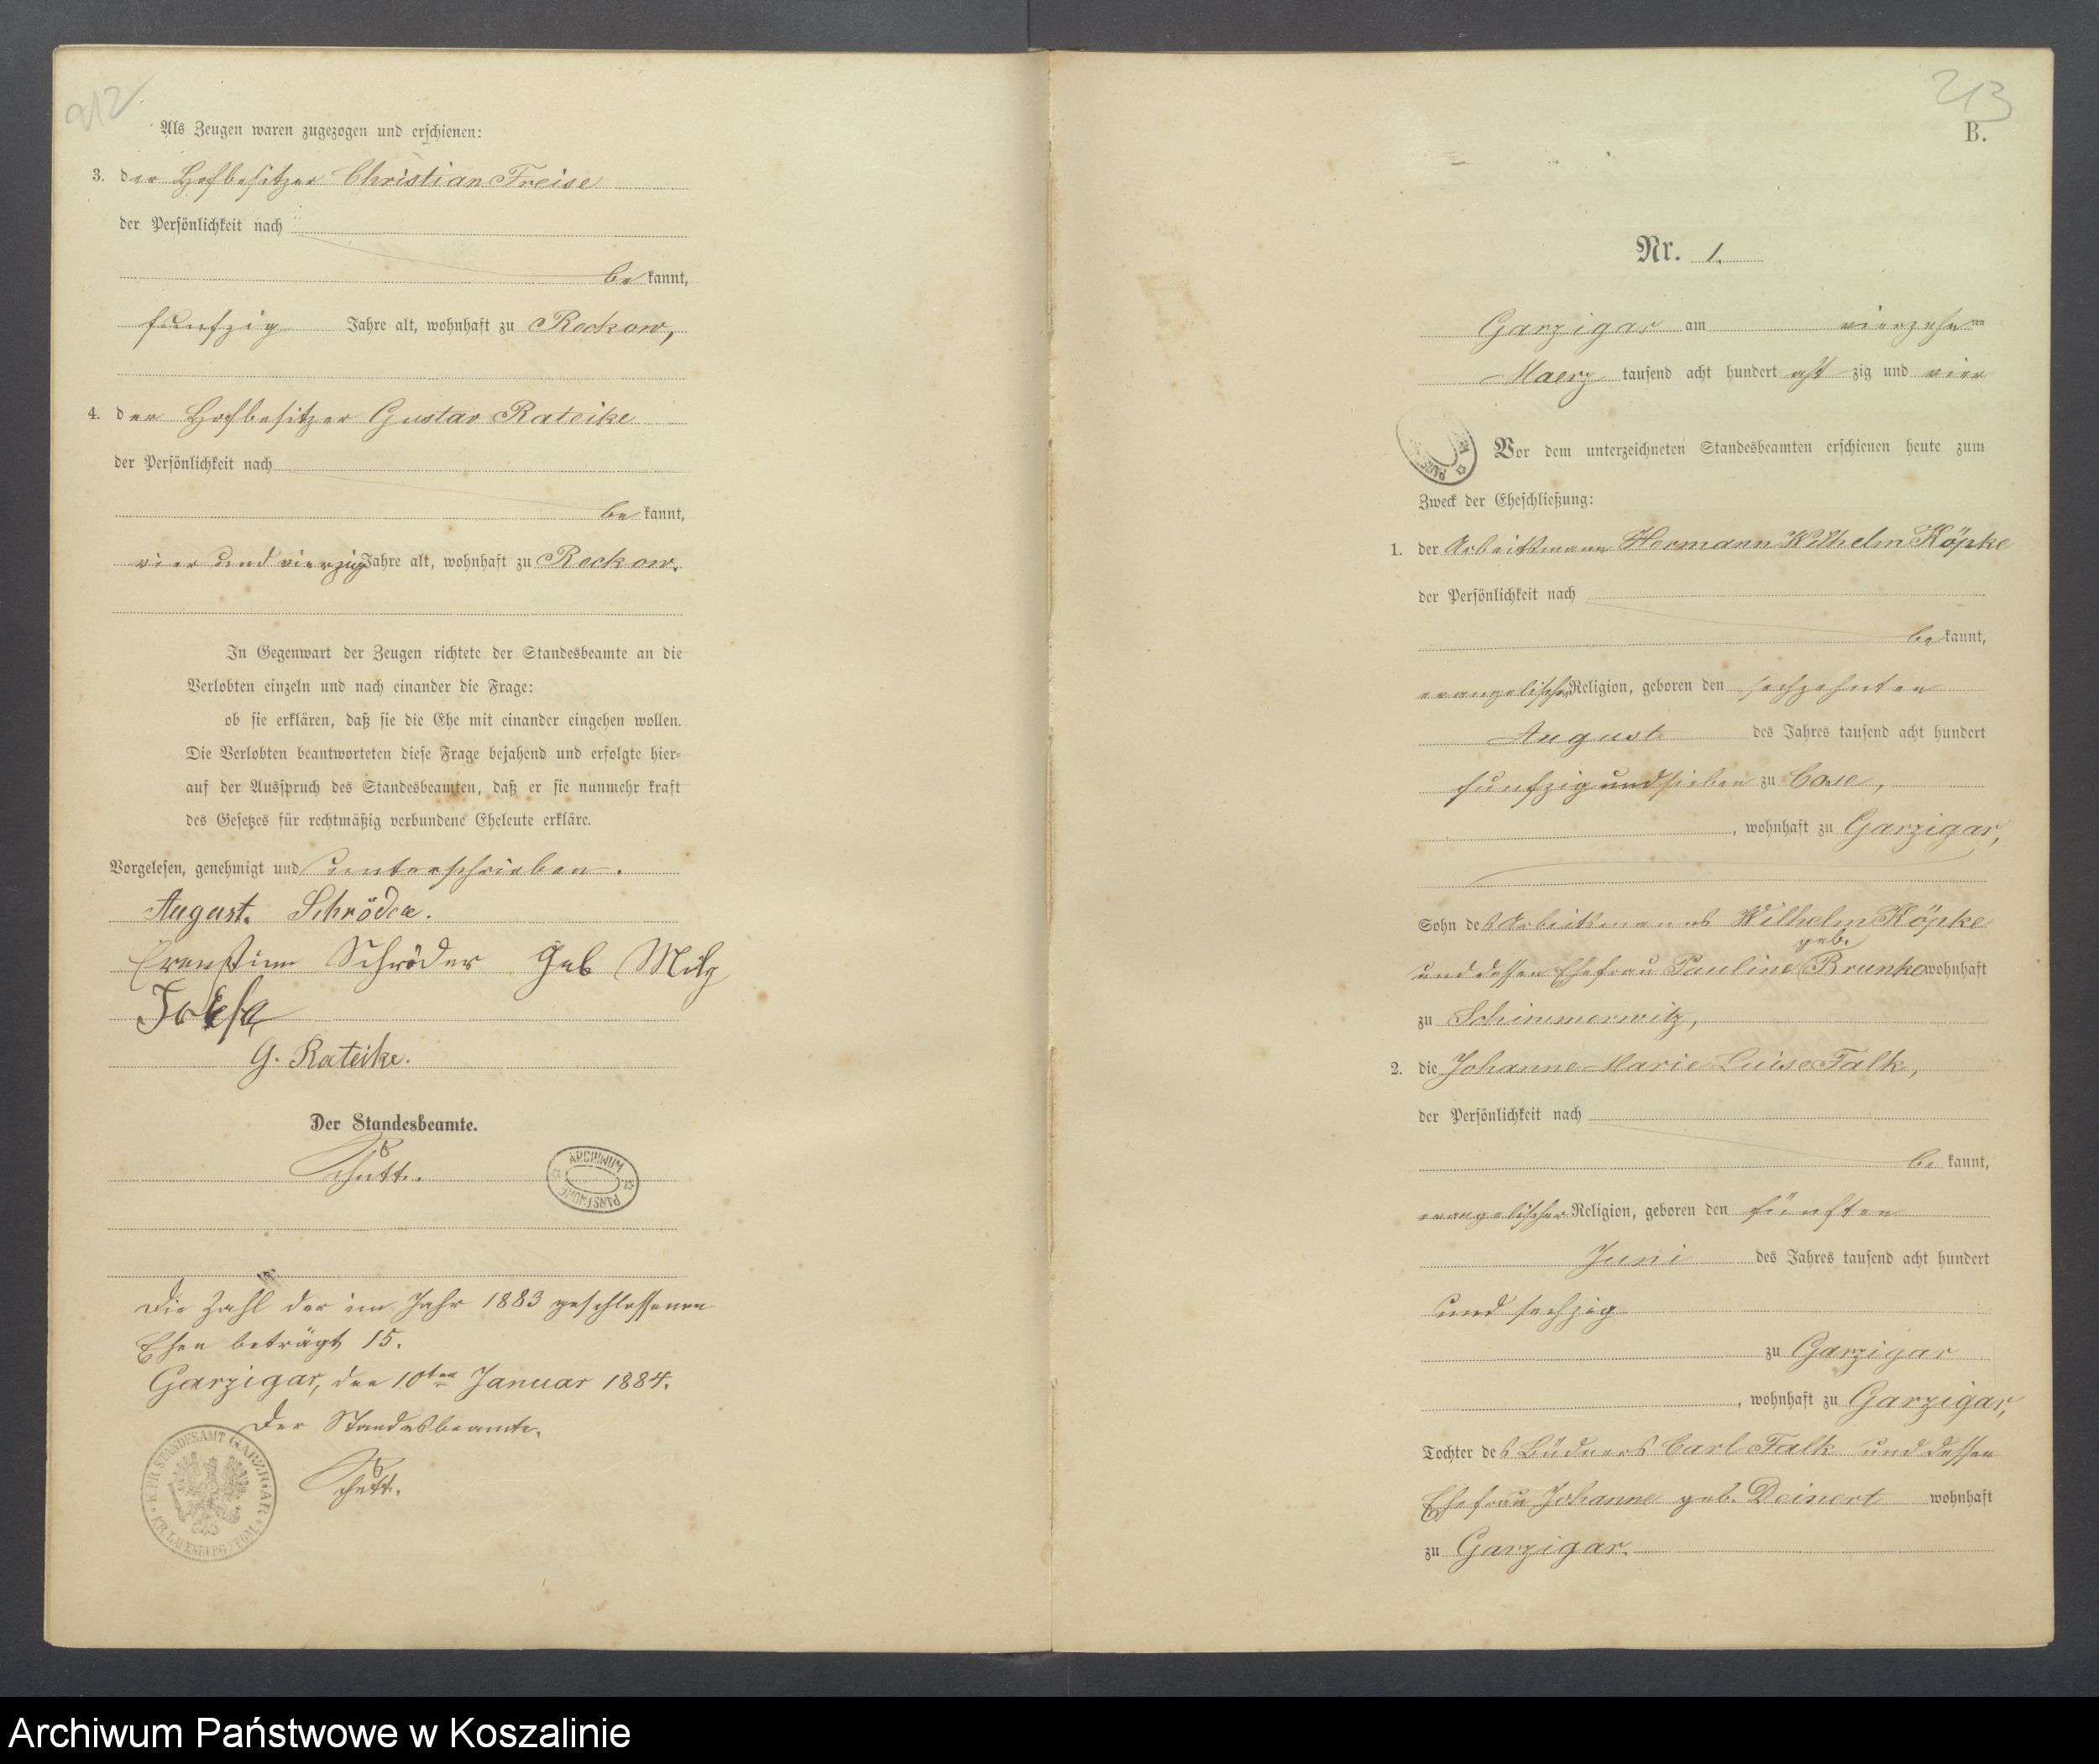 212
Als Zeugen waren zugezogen und erschienen:
3. der Hofbesitzer Christian Freise
der Persönlichkeit nach
be kannt,
funfzig Jahre alt, wohnhaft zu Reckow,
4. der Hofbesitzer Gustav Rateike
der Persönlichkeit nach
be kannt,
vier und vierzig Jahre alt, wohnhaft zu Reckow.
In Gegenwart der Zeugen richtete der Standesbeamte an die
Verlobten einzeln und nach einander die Frage:
ob sie erklären, daß sie die Ehe mit einander eingehen wollen.
Die Verlobten beantworteten diese Frage bejahend und erfolgte hier-
auf der Ausspruch des Standesbeamten, daß er sie nunmehr kraft
des Gesetzes für rechtmäßig verbundene Eheleute erkläre.
Vorgelesen, genehmigt und unterschrieben.
August. Schröder.
Schröder geb
G. Rateike.
Der Standesbeamte.
Schutt.
ARCHIWUM PAŃSTWOWE
Die Zahl der im Jahr 1883 geschlossenen
Ehen beträgt 15.
Garzigar, den 10ten Januar 1884.
Der Standesbeamte.
Schutt.
K. PR. STANDESAMT GARZIGAR * KR. LAUENBURG i/POM. *
213
B.
Nr. 1.
Garzigar am vierzehnten
Maerz tausend acht hundert acht zig und vier
Vor dem unterzeichneten Standesbeamten erschienen heute zum
Zweck der Eheschließung:
1. der Arbeitsmann Hermann Wilhelm Köpke
der Persönlichkeit nach
be kannt,
evangelischer Religion, geboren den sechzehnten
August des Jahres tausend acht hundert
funfzig und sieben zu Bose,
, wohnhaft zu Garzigar,
Sohn des Arbeitsmanns Wilhelm Köpke
und dessen Ehefrau Pauline geb. Brunke wohnhaft
zu Schimmerwitz,
2. die Johanne Marie Luise Falk,
der Persönlichkeit nach
be kannt,
evangelischer Religion, geboren den fünften
Juni des Jahres tausend acht hundert
und sechzig
zu Garzigar
, wohnhaft zu Garzigar,
Tochter des Büdners Carl Falk und dessen
Ehefrau Johanne geb. Deinert wohnhaft
zu Garzigar.
Archiwum Państwowe w Koszalinie